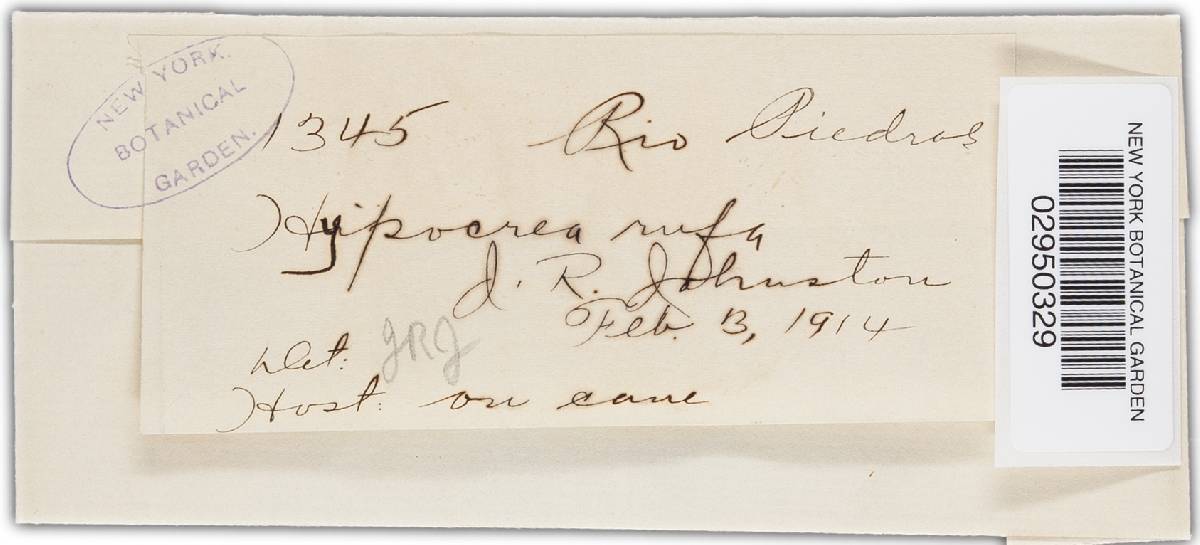 NEW YORK
BOTANICAL
GARDEN.
1345 Rio Piedras
Hypocrea rufa
J. R. Johnston
Feb. 13, 1914
Det: JRJ
Host: on cane
NEW YORK BOTANICAL GARDEN
02950329